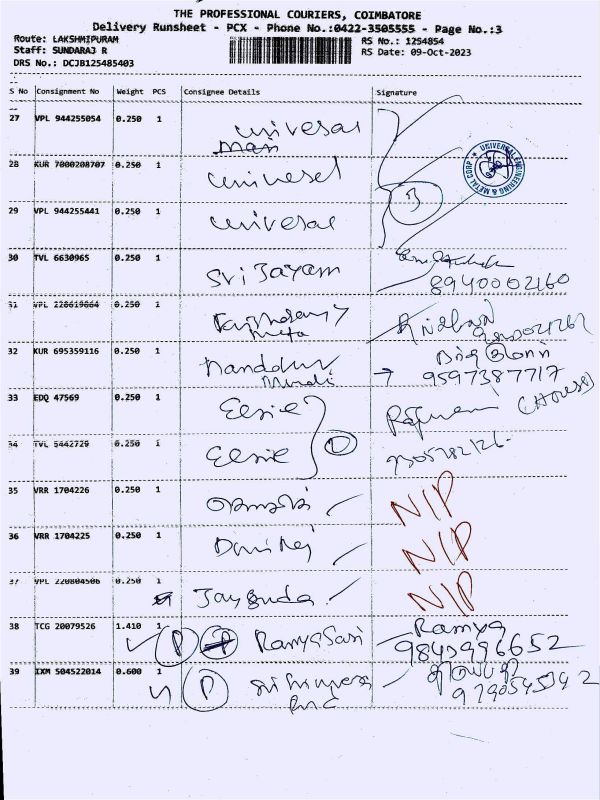 THE PROFESSIONAL COURIERS, COIMBATORE
Delivery Runsheet - PCX - Phone No.:0422-3505555 - Page No.:3
Route: LAKSHMIPURAM RS No.: 1254854
Staff: SUNDARAJ R RS Date: 09-Oct-2023
DRS No.: DCJB125485403
S No Consignment No Weight PCS Consignee Details Signature
27 VPL 944255054 0.250 1 universal
main
UNIVERSAL ENGINEERING & METAL CORP
28 KUR 7000208707 0.250 1 universal
3
29 VPL 944255441 0.250 1 universal
30 TVL 6630965 0.250 1 Sri Jayam
8940002160
31 VPL 228619864 0.250 1
32 KUR 695359116 0.250 1
→ 9597387717
33 EDQ 47569 0.250 1 Elsie (HOUSE)
34 TVL 5442729 0.250 1 Elsie
35 VRR 1704226 0.250 1 NIP
36 VRR 1704225 0.250 1 NIP
37 VPL 220804506 0.250 1 NIP
38 TCG 20079526 1.410 1 P Ramya Sari Ramya
9843996652
39 IXM 504522014 0.600 1 P